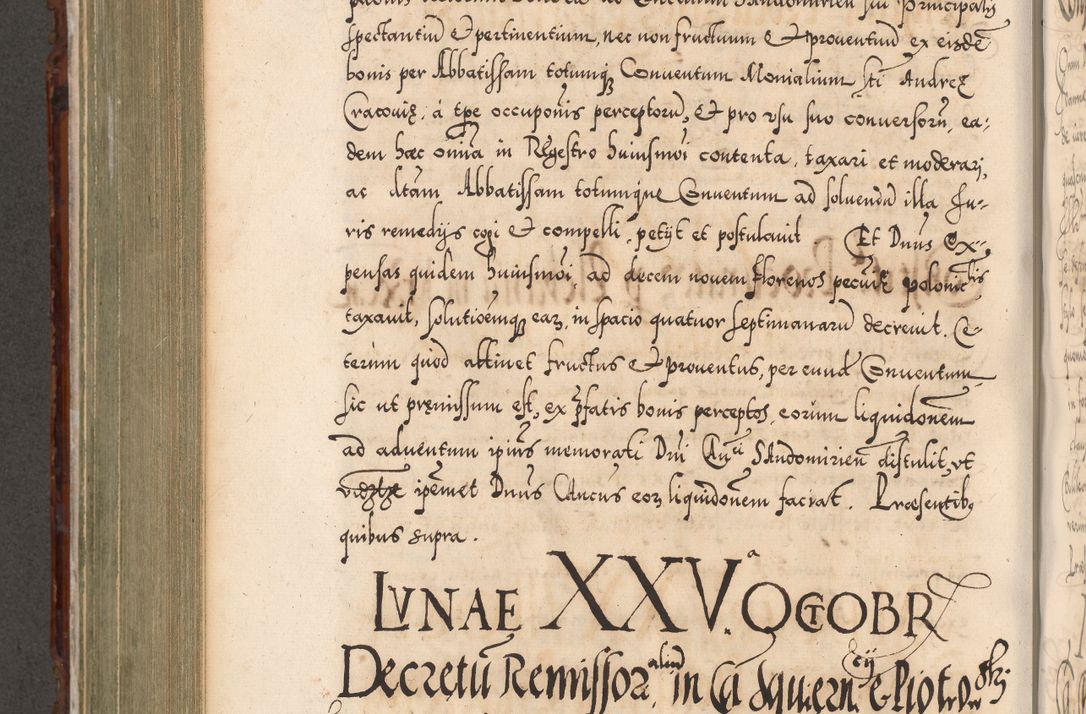 spectantiu et pertinentium, nec non fructuum et proventuu ex eisde
bonis per Abbatissam totumq Conventum Monialium Sti Andreę
Cracovię, á tpe occuponis perceptoru, et pro usu suo conversoru, ea-
dem hæc omia in Regestro huiusmoi contenta, taxari et moderari,
ac dtam Abbatissam totumque Conventum ad solvendu illa Ju-
ris remedijs cogi et compelli, petijt et postulavit Et Dnus Ex-
pensas quidem huiusmoi, ad decem novem florenos pecuię polonic
taxavit, solutioemq earz, in spacio quatuor septimanaru decrevit. Ce-
terum quod attinet fructus et proventus, per eund Conventum
sic ut pręmissum est, ex pfatis bonis perceptos, eorum liquidonem
ad adventum ipius memorati Dni Sandomirien distulit, ut
ipemet Dnus Cancus eorz liquidonem faciat. Præsentib
quibus supra.
LVNAE XXV.a OCTOBR
Decretu Remissor in Ca et Piotro